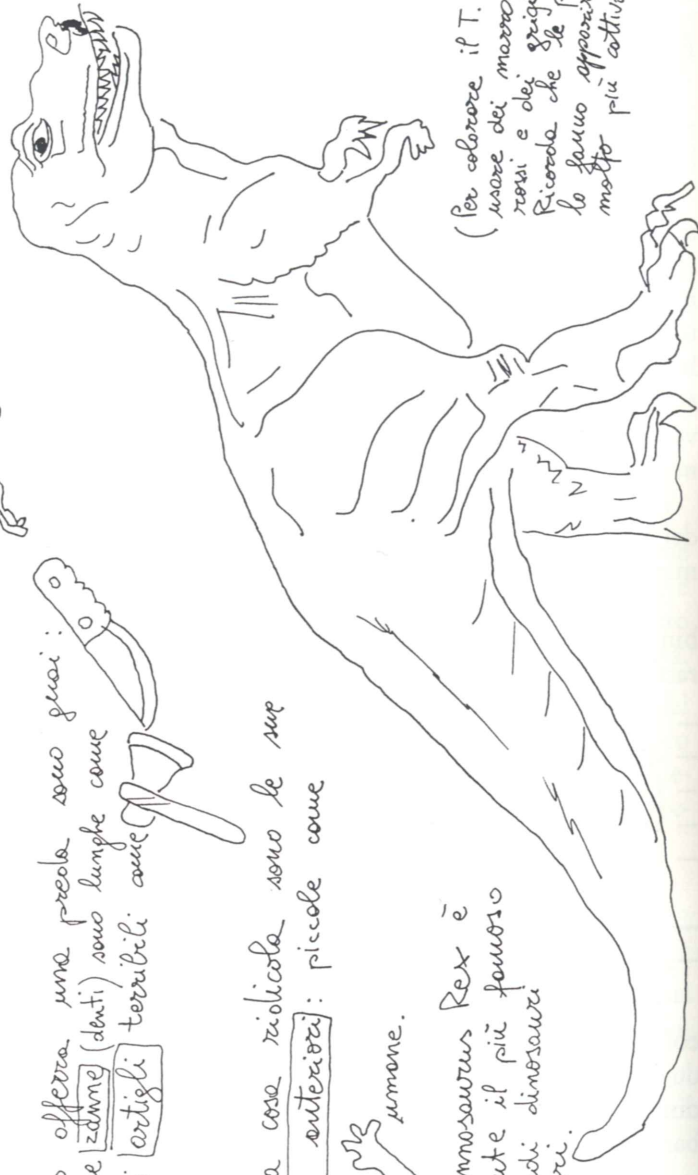 offerra una preda sono guai :
zanne (denti) sono lunghe come
artigli terribili come
cosa ridicola sono le sue
anteriori : piccole come
umane.
nnosaurus Rex è
te il più famoso
di dinosauri
ri.
(Per colorare il T.
usare dei marro
rossi e dei grig
Ricorda che le p
lo fanno appari
molto più cattiv